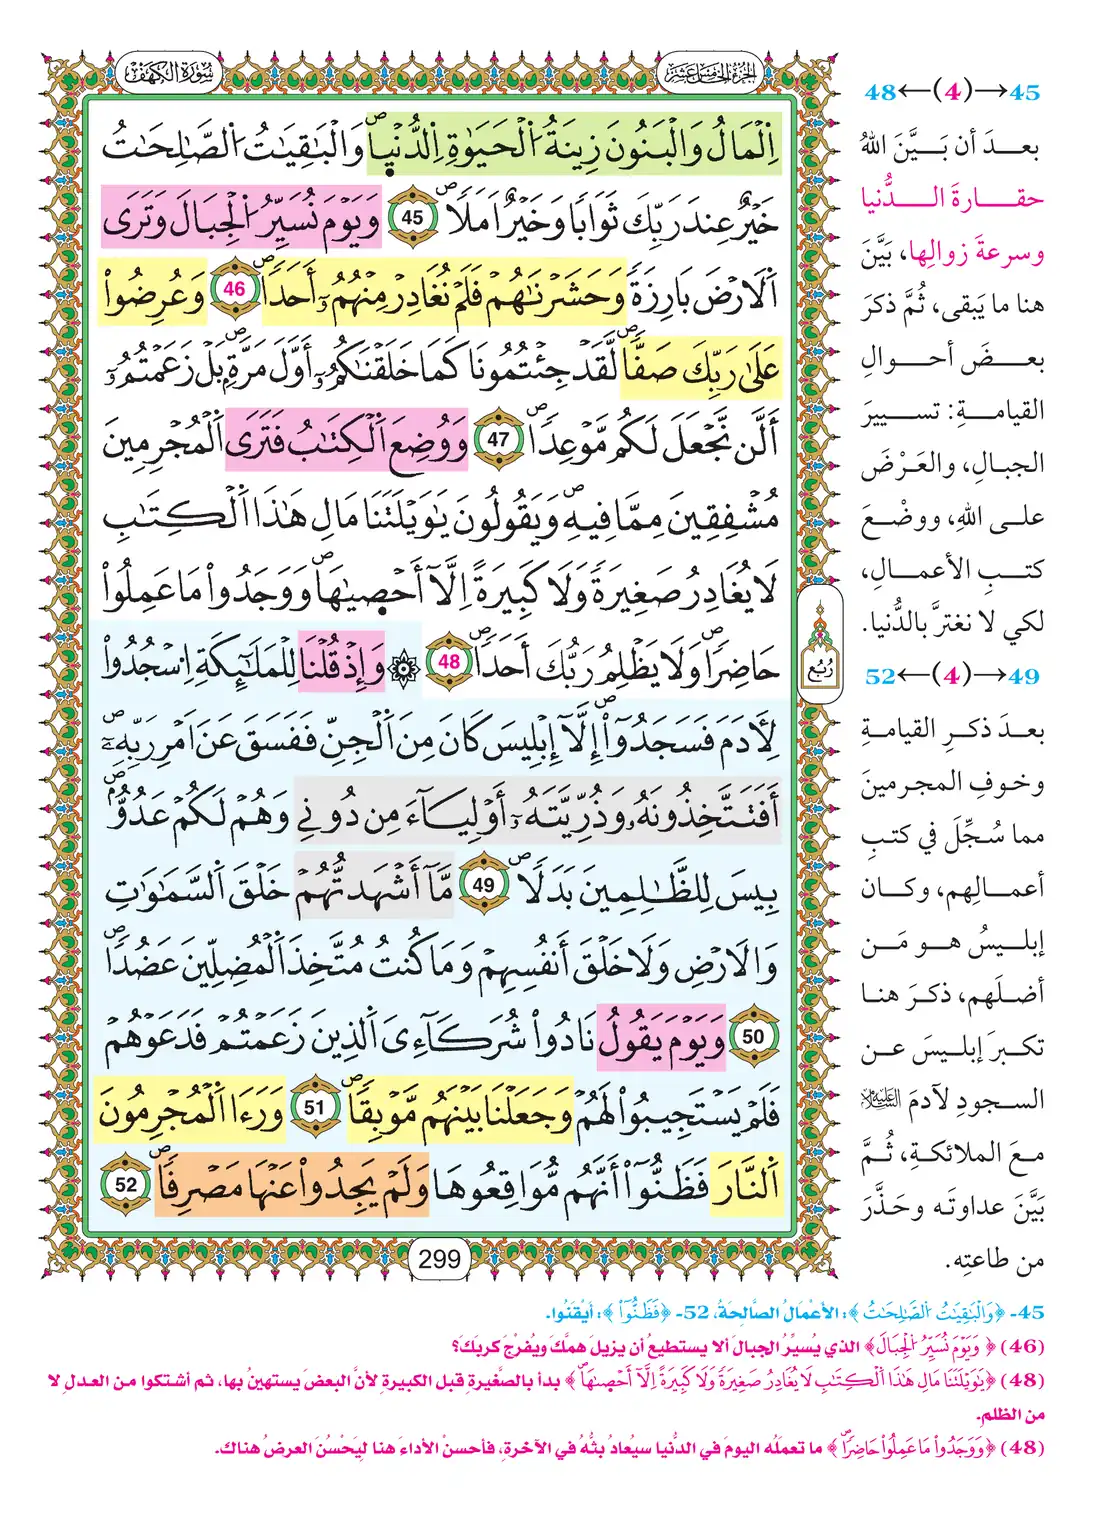 سُورَةُ الكَهْفِ
الجُزْءُ الخَامِسَ عَشَرَ
اِ۬لْمَالُ وَالْبَنُونَ زِينَةُ اُ۬لْحَيَوٰةِ اِ۬لدُّنْي۪اۖ وَالْبَٰقِيَٰتُ اُ۬لصَّٰلِحَٰتُ
خَيْرٌ عِندَ رَبِّكَ ثَوَابٗا وَخَيْرٌ اَمَلٗاۖ 45 وَيَوْمَ نُسَيِّرُ اُ۬لْجِبَالَ وَتَرَى
اَ۬لَارْضَ بَارِزَةٗ وَحَشَرْنَٰهُمْ فَلَمْ نُغَادِرْ مِنْهُمُۥٓ أَحَدٗاۖ 46 وَعُرِضُواْ
عَلَىٰ رَبِّكَ صَفّٗاۖ لَّقَدْ جِئْتُمُونَا كَمَا خَلَقْنَٰكُمُۥٓ أَوَّلَ مَرَّةِۢۖ بَلْ زَعَمْتُمُۥٓ
أَلَّن نَّجْعَلَ لَكُم مَّوْعِدٗاۖ 47 وَوُضِعَ اَ۬لْكِتَٰبُ فَتَرَى اَ۬لْمُجْرِمِينَ
مُشْفِقِينَ مِمَّا فِيهِۖ وَيَقُولُونَ يَٰوَيْلَتَنَا مَالِ هَٰذَا اَ۬لْكِتَٰبِ
لَا يُغَادِرُ صَغِيرَةٗ وَلَا كَبِيرَةً اِلَّآ أَحْص۪يٰهَاۖ وَوَجَدُواْ مَا عَمِلُواْ
حَاضِرٗاۖ وَلَا يَظْلِمُ رَبُّكَ أَحَدٗاۖ 48 ۞ وَإِذْ قُلْنَا لِلْمَلَٰٓئِكَةِ اِ۟سْجُدُواْ
لِأٓدَمَ فَسَجَدُوٓاْۖ إِلَّآ إِبْلِيسَ كَانَ مِنَ اَ۬لْجِنِّ فَفَسَقَ عَنَ اَمْرِ رَبِّهِۦٓۖ
أَفَتَتَّخِذُونَهُۥ وَذُرِّيَّتَهُۥٓ أَوْلِيَآءَ مِن دُونِے وَهُمْ لَكُمْ عَدُوُّۢۖ
بِيسَ لِلظَّٰلِمِينَ بَدَلٗاۖ 49 مَّآ أَشْهَدتُّهُمْ خَلْقَ اَ۬لسَّمَٰوَٰتِ
وَالَارْضِ وَلَا خَلْقَ أَنفُسِهِمْ وَمَا كُنتُ مُتَّخِذَ اَ۬لْمُضِلِّينَ عَضُدٗاۖ
50 وَيَوْمَ يَقُولُ نَادُواْ شُرَكَآءِيَ اَ۬لذِينَ زَعَمْتُمْ فَدَعَوْهُمْ
فَلَمْ يَسْتَجِيبُواْ لَهُمْ وَجَعَلْنَا بَيْنَهُم مَّوْبِقٗاۖ 51 وَرَءَا اَ۬لْمُجْرِمُونَ
اَ۬لنَّارَ فَظَنُّوٓاْ أَنَّهُم مُّوَاقِعُوهَا وَلَمْ يَجِدُواْ عَنْهَا مَصْرِفٗاۖ 52
رُبُع
299
45→(4)←48
بعدَ أن بَيَّنَ اللهُ
حقارةَ الدُّنيا
وسرعةَ زوالِها، بَيَّنَ
هنا ما يَبقى، ثُمَّ ذكرَ
بعضَ أحوالِ
القيامةِ: تسييرَ
الجبالِ، والعَرْضَ
على اللهِ، ووضْعَ
كتبِ الأعمالِ،
لكي لا نغترَّ بالدُّنيا.
49→(4)←52
بعدَ ذكرِ القيامةِ
وخوفِ المجرمينَ
مما سُجِّلَ في كتبِ
أعمالِهم، وكان
إبليسُ هو مَن
أضلَهم، ذكرَ هنا
تكبرَ إبليسَ عن
السجودِ لآدمَ عليه السلام
معَ الملائكةِ، ثُمَّ
بَيَّنَ عداوتَه وحَذَّرَ
من طاعتِه.
45- ﴿وَالْبَٰقِيَٰتُ اُ۬لصَّٰلِحَٰتُ﴾: الأعْمَالُ الصَّالِحَةُ، 52- ﴿فَظَنُّوٓاْ﴾: أيْقَنُوا.
(46) ﴿وَيَوْمَ نُسَيِّرُ اُ۬لْجِبَالَ﴾ الذي يُسيِّرُ الجبالَ ألا يستطيعُ أن يزيلَ همَّكَ ويُفرْجَ كربكَ؟
(48) ﴿يَٰوَيْلَتَنَا مَالِ هَٰذَا اَ۬لْكِتَٰبِ لَا يُغَادِرُ صَغِيرَةٗ وَلَا كَبِيرَةً اِلَّآ أَحْص۪يٰهَاۖ﴾ بدأ بالصَّغيرةِ قبل الكبيرةِ لأنَّ البعضَ يستهينُ بها، ثم أشتكوا من العدلِ لا
من الظلمِ.
(48) ﴿وَوَجَدُواْ مَا عَمِلُواْ حَاضِرٗاۖ﴾ ما تعملُه اليومَ في الدُّنيا سيُعادُ بثُّهُ في الآخرةِ، فأحسنْ الأداءَ هنا ليَحْسُنَ العرضُ هناك.